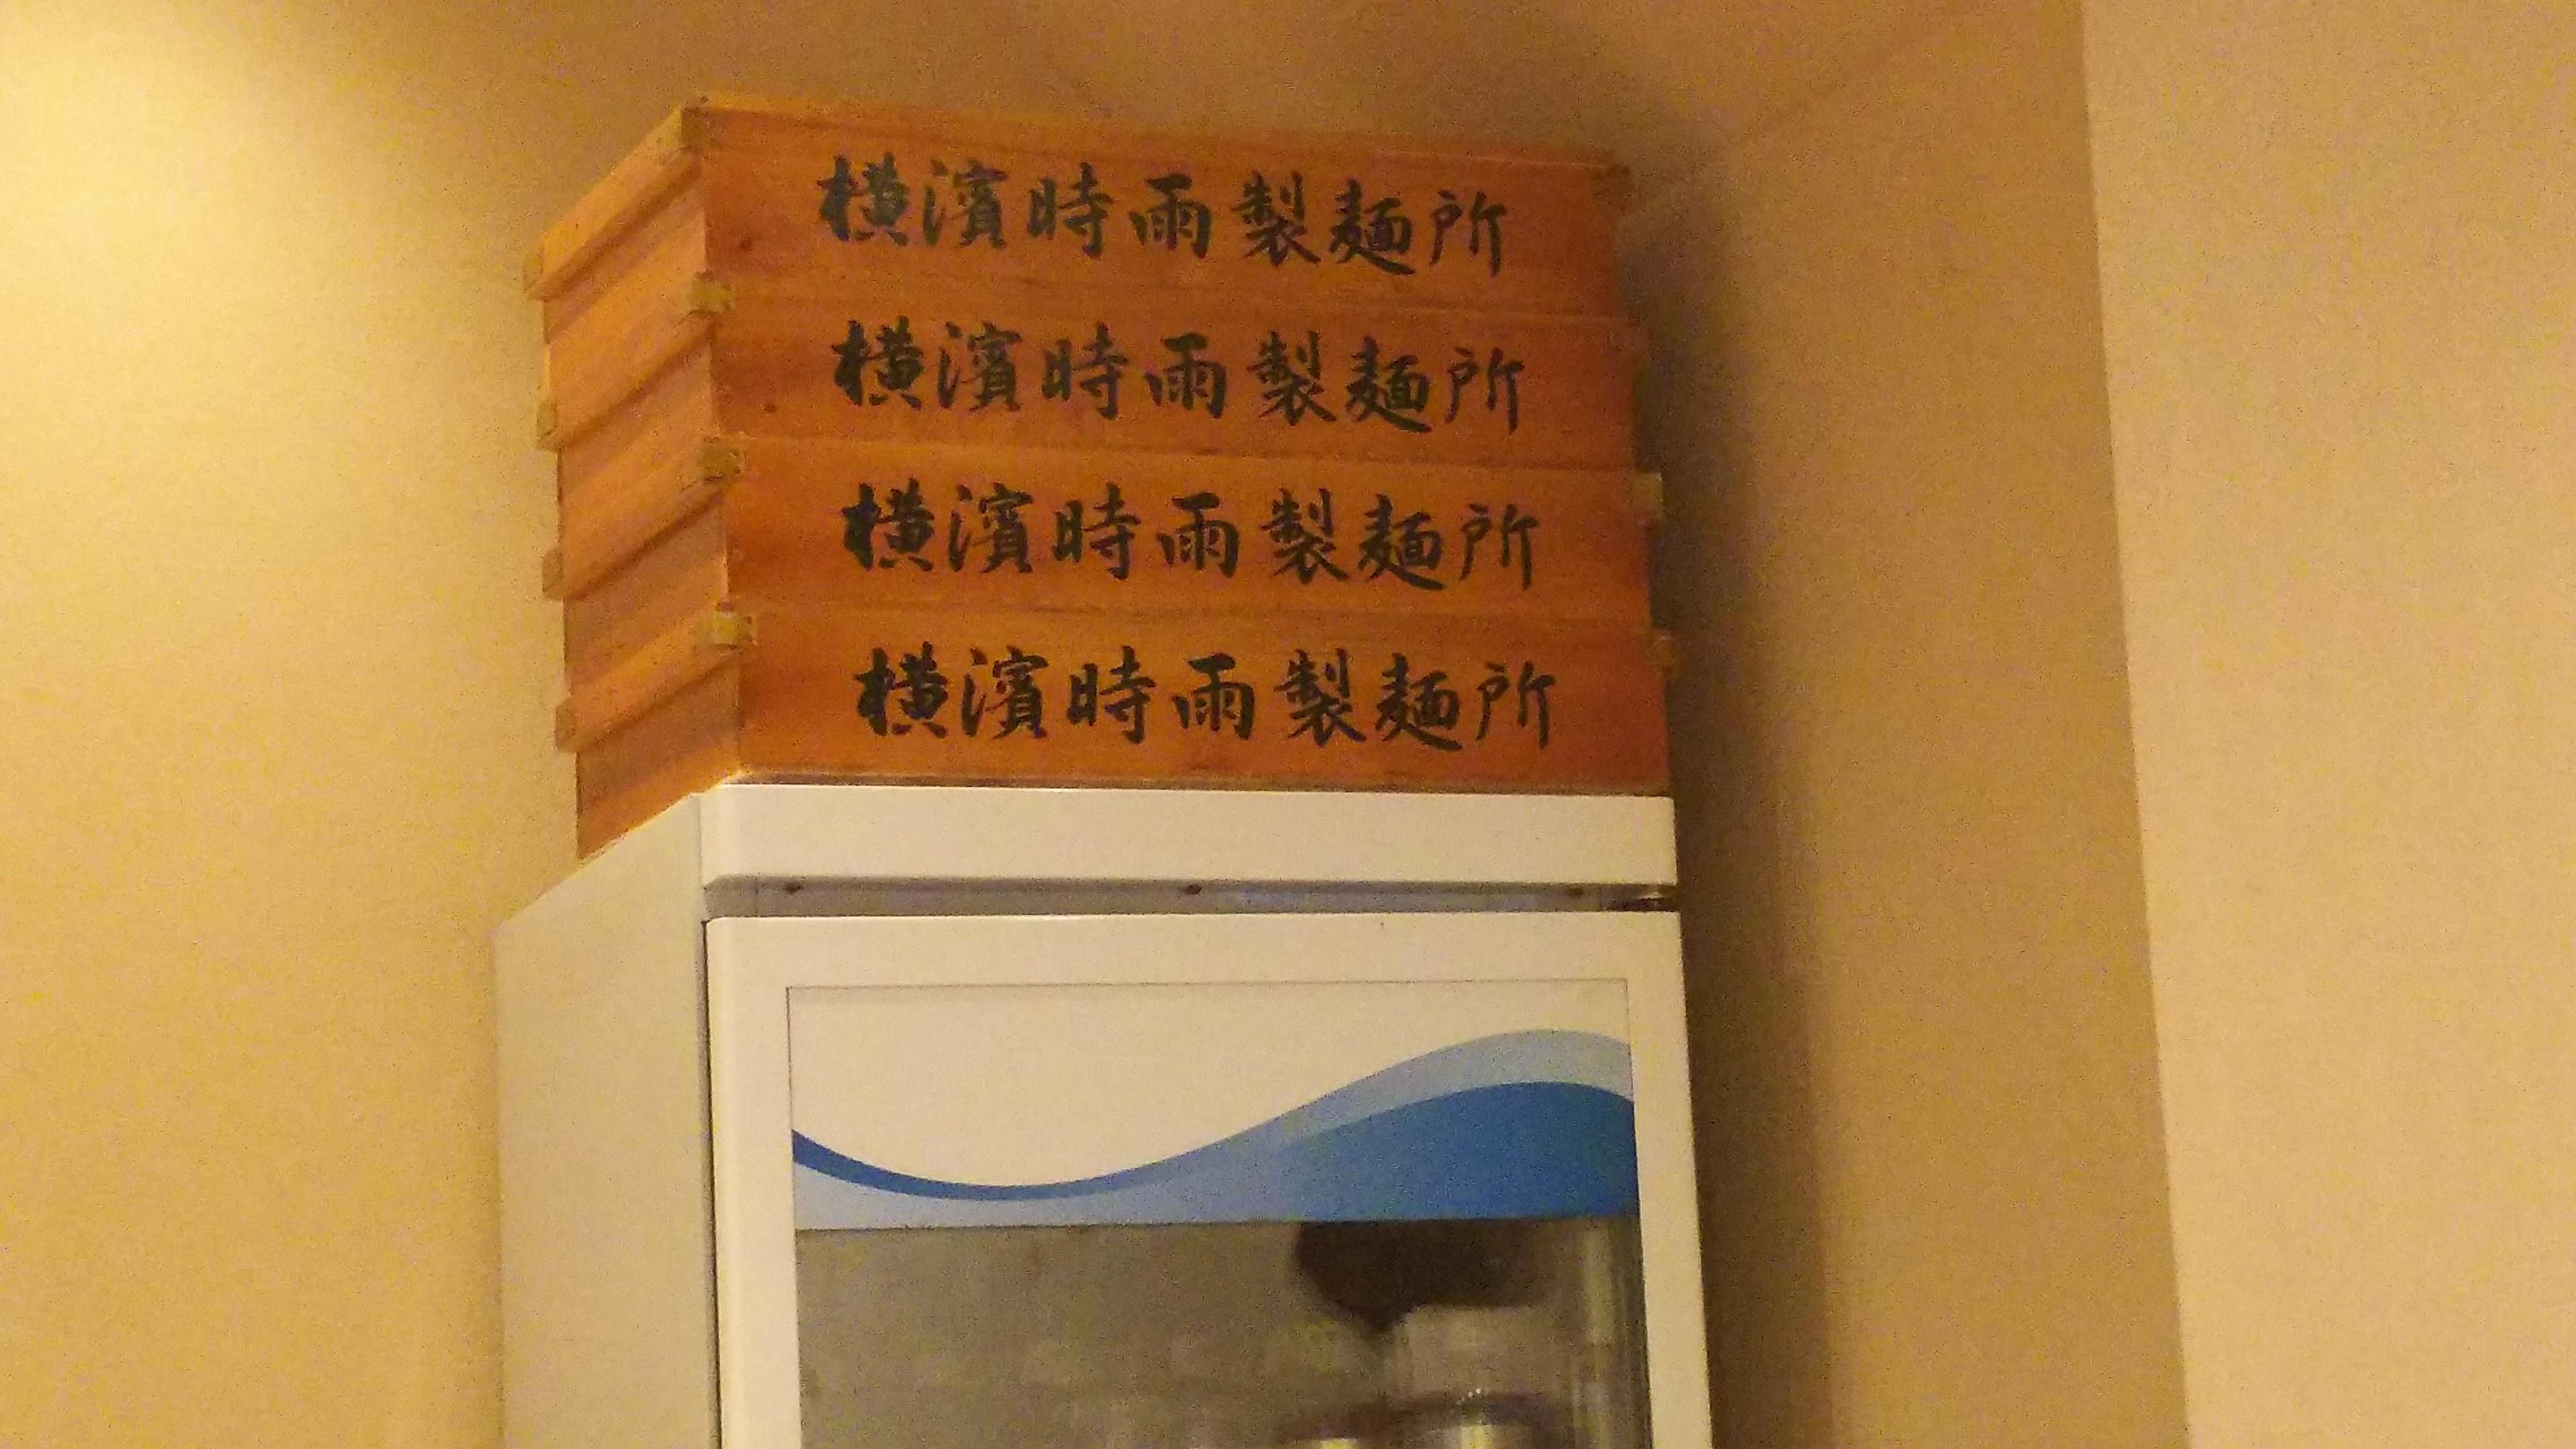 横濱時雨製麺所
横濱時雨製麺所
横濱時雨製麺所
横濱時雨製麺所